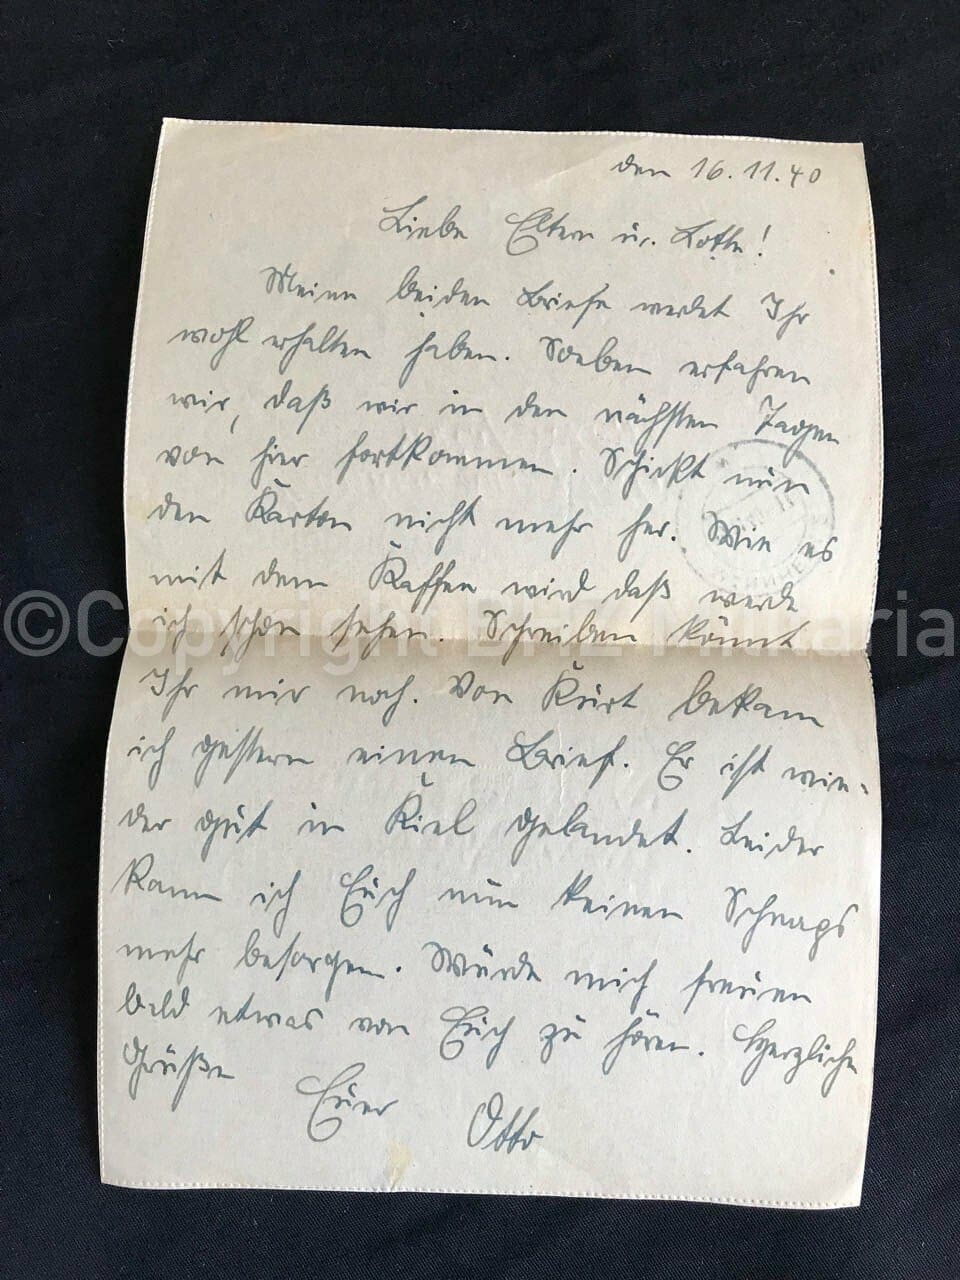 den 16.11.40
Liebe Eltern u. Lotte!
Meine beiden Briefe werdet Ihr
wohl erhalten haben. Soeben erfahren
wir, daß wir in den nächsten Tagen
von hier fortkommen. Schickt nun
den Karton nicht mehr her. Wie es
mit dem Kaffee wird daß werde
ich schon sehen. Schreiben könnt
©Copyright BHZ Militaria
Ihr mir noch. Von Kurt bekam
ich gestern einen Brief. Er ist wie-
der gut in Kiel gelandet. Leider
kann ich Euch nun keinen Schnaps
mehr besorgen. Würde mich freuen
bald etwas von Euch zu hören. Herzliche
Grüße
Euer Otto